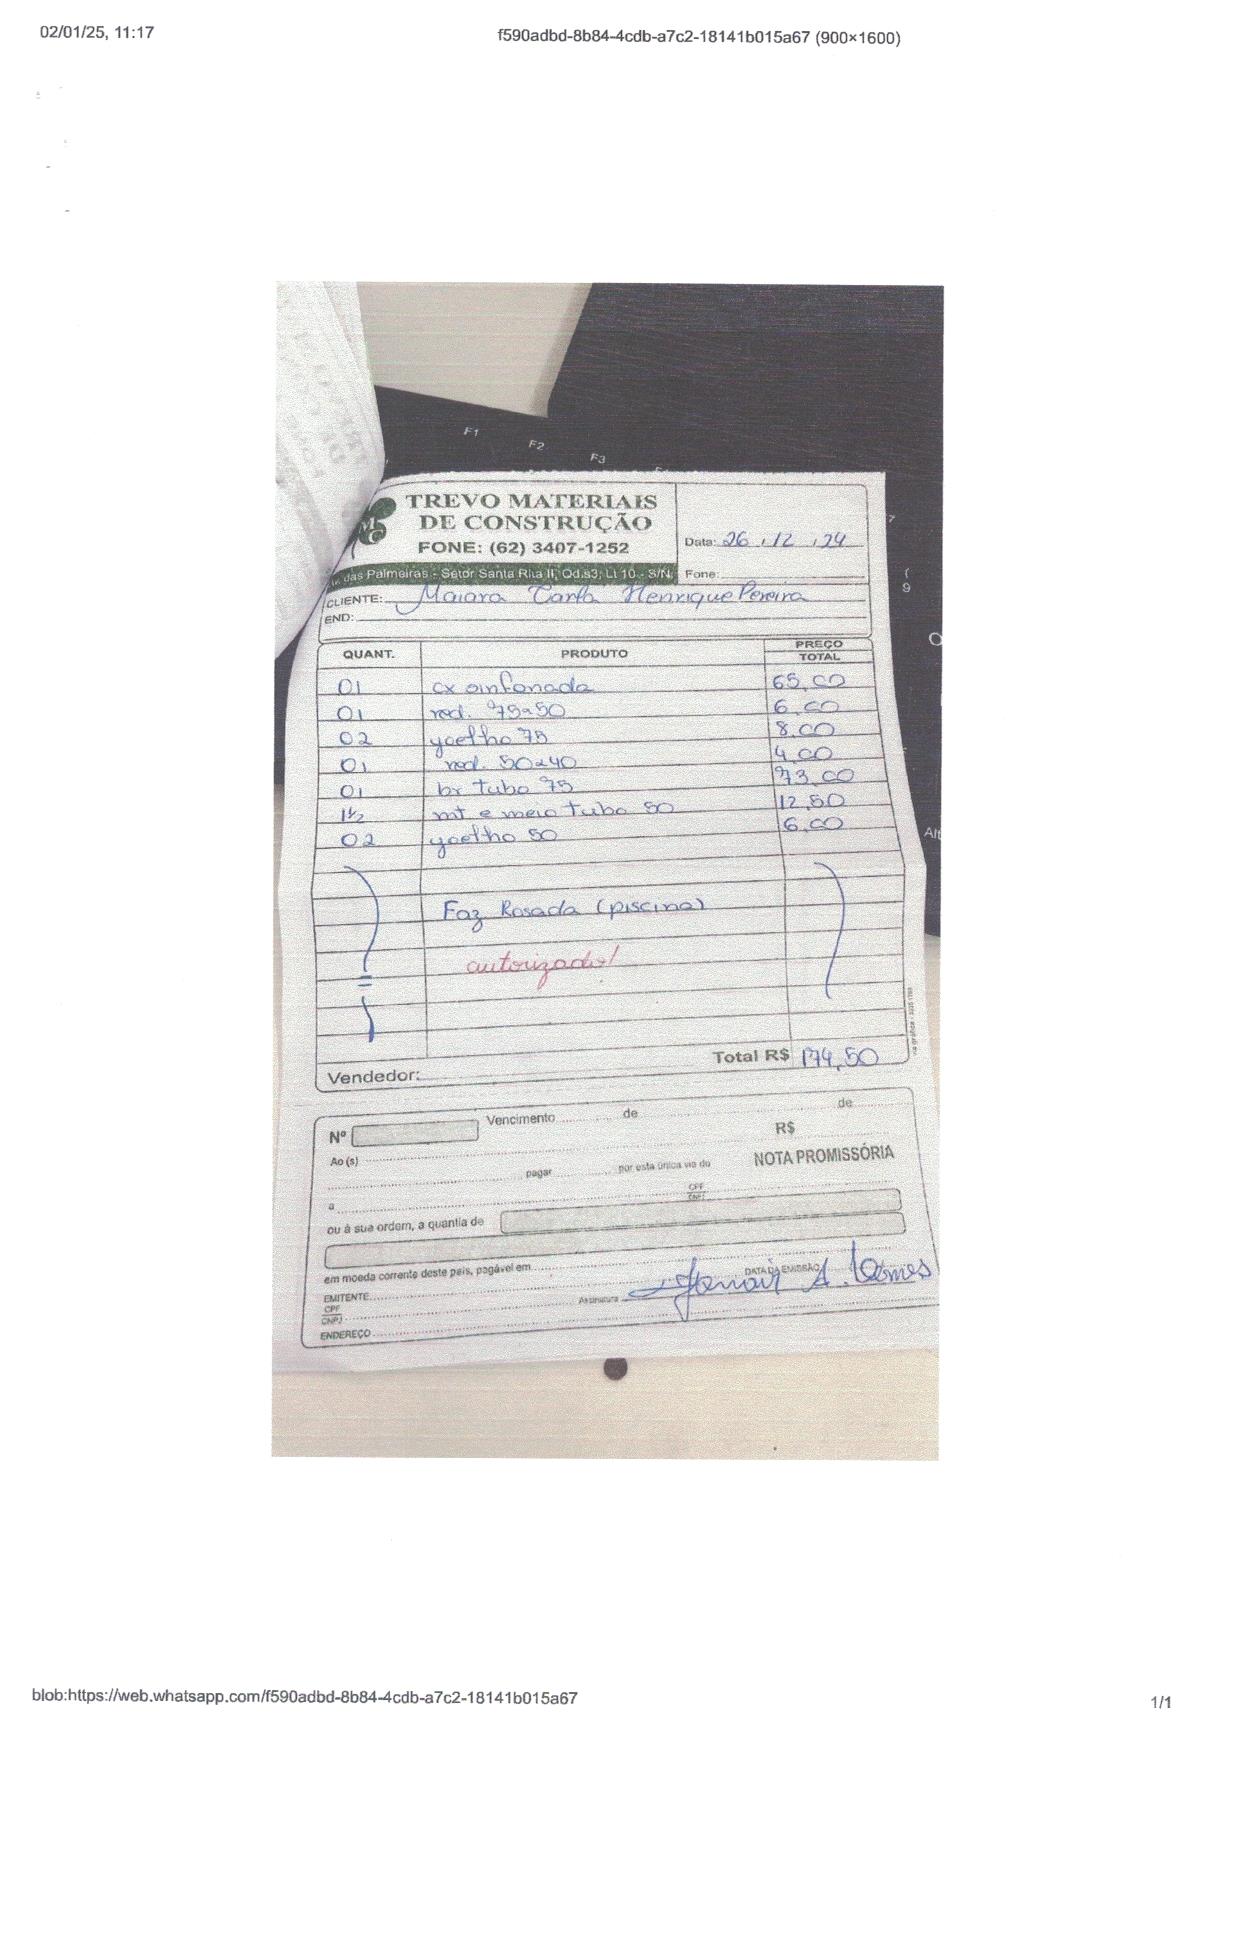 02/01/25, 11:17
f590adbd-8b84-4cdb-a7c2-18141b015a67 (900×1600)
F1
F2
F3
TREVO MATERIAIS
DE CONSTRUÇÃO
FONE: (62) 3407-1252
das Palmeiras - Setor Santa Rita II, Qd.s3, Lt 10 - S/N
Data: 26 / 12 / 24
Fone:
CLIENTE: Maiara Carla Henrique Pereira
END:
QUANT. PRODUTO PREÇO TOTAL
01 cx sinfonada 65,00
01 red. 75a50 6,00
02 joelho 75 8,00
01 red. 50a40 4,00
01 br tubo 75 73,00
1½ mt e meio tubo 50 12,50
02 joelho 50 6,00
Faz Rosada (piscina)
autorizado!
Total R$ 174,50
Vendedor:
Nº
Vencimento de de
R$
Ao(s)
NOTA PROMISSÓRIA
pagar por esta única via de
a
CPF
CNPJ
ou à sua ordem, a quantia de
em moeda corrente deste país, pagável em
DATA DA EMISSÃO
EMITENTE
Assinatura
CPF
CNPJ
ENDEREÇO
Alt
blob:https://web.whatsapp.com/f590adbd-8b84-4cdb-a7c2-18141b015a67
1/1